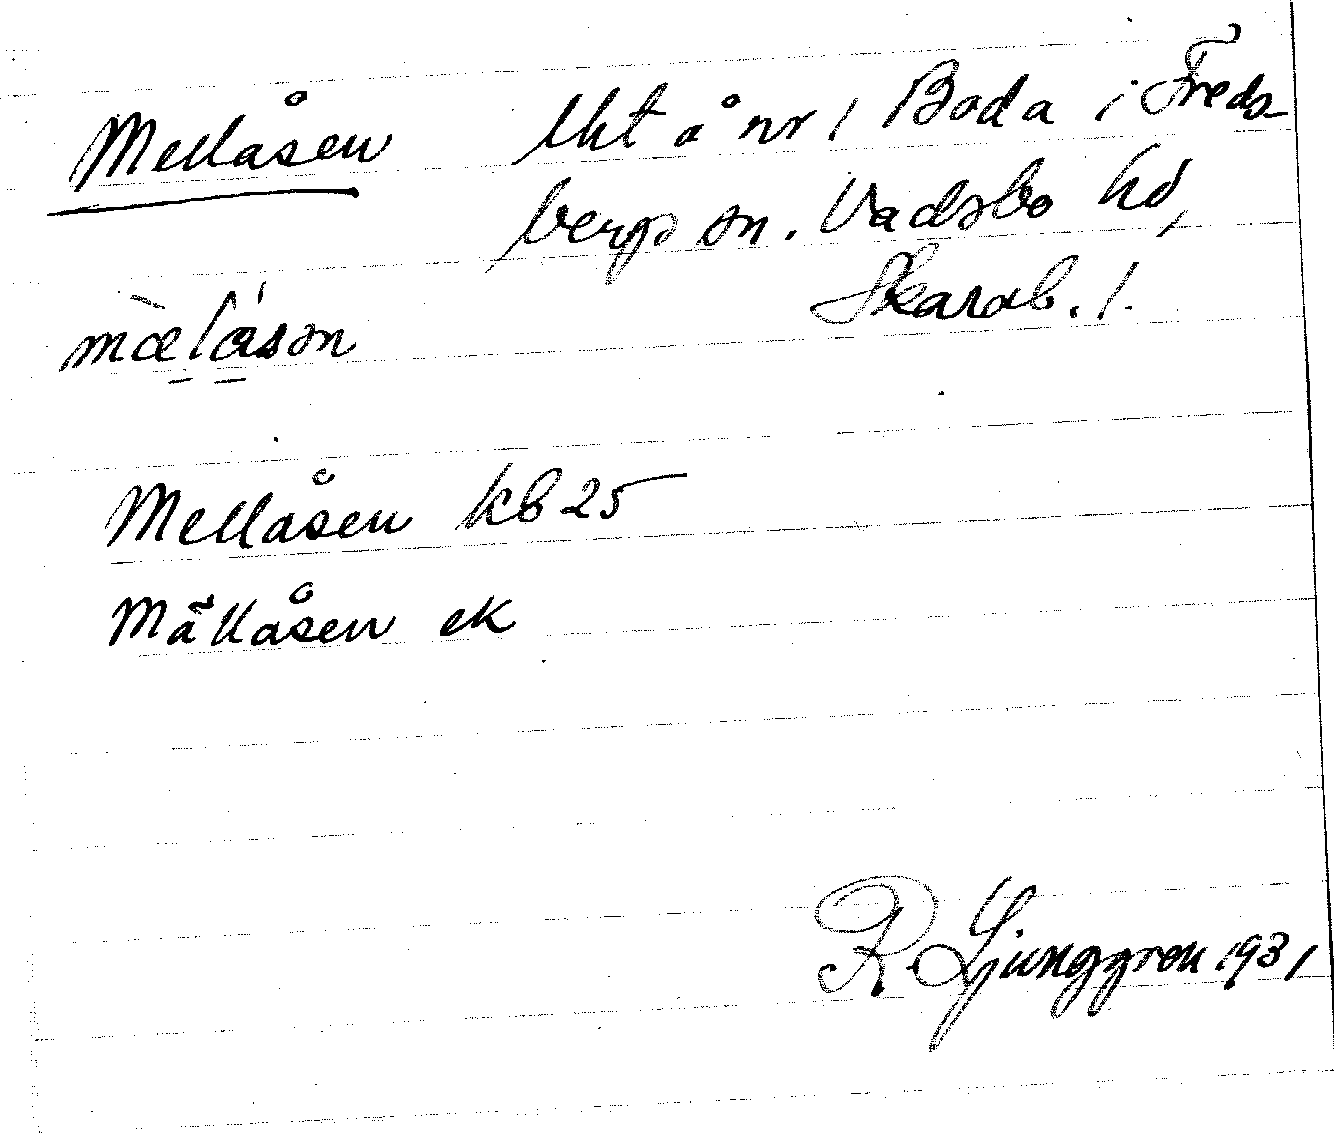 Mellåsen lht å nr 1 Boda i Freds-
bergs sn. Vadsbo hd,
Skarab. l.
mæ̀lǻsən
Mellåsen kb 25
Mällåsen ek
R. Ljunggren 1931